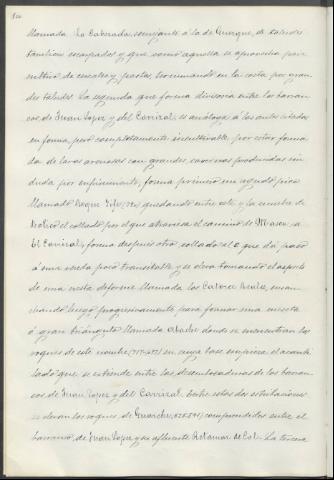 llamada La Cabezada, semejante á la de Guergue, de taludes
tambien escarpados y que como aquella se aprovecha para
cultivo de cereales y pastos, terminando en la costa por gran
des taludes. La segunda que forma divisoria entre los barran
cos de Juan Lopez y del Carrizal, es análoga á las antes citadas
en forma, pero completamente incultivable, por estar forma
da de lavas arenosas con grandes cavernas producidas sin
duda por enfriamiento, forma primero un agudo pico
llamado Roque quedando entre este y la cumbre de
el collado por el que atraviesa el camino de Masca á
El Carrizal, forma despues otro collado al O que dá paso
á una vereda poco transitable y se eleva tomando el aspecto
de una cresta deforme llamada los Catorce Reales, ensan
chando luego progresivamente para formar una meseta
ó gran triángulo llamada Abache donde se encuentran los
roques de este nombre en cuya base empieza el acanti
lado que se extiende entre las desembocaduras de los barran
cos de Juan Lopez y del Carrizal. Entre estas dos estribaciones
se elevan los roques de comprendidos entre el
barranco de Juan Lopez y su afluente Retamar de Col. La tercera